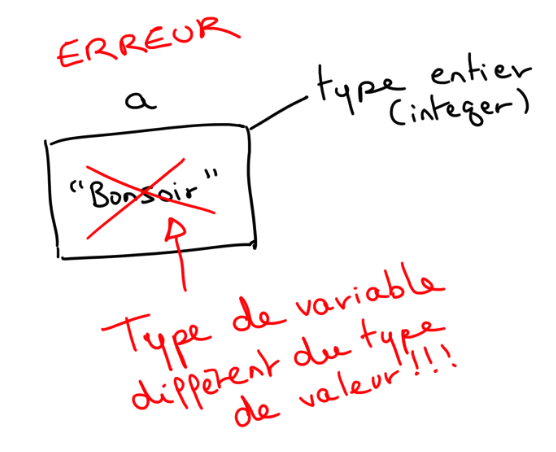 ERREUR
a
type entier
(integer)
"Bonsoir"
Type de variable
différent du type
de valeur!!!